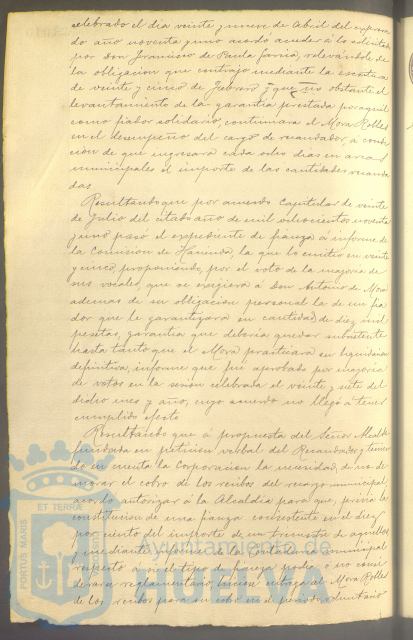 celebrado el dia veinte y nueve de Abril del expresa
do año noventa y uno acordó acceder á lo solicitado
por Don Francisco de Paula García, relevándole de
la obligacion que contrajo mediante la escritura
de veinte y cinco de Febrero y que no obstante el
levantamiento de la garantia prestada por aquel
como fiador solidario, continuara el Mora Robles
en el desempeño del cargo de recaudador, á condi
cion de que ingresara cada ocho dias en arcas
municipales el importe de las cantidades recauda
das
Resultando que por acuerdo Capitular de veinte
de Julio del citado año de mil ochocientos noventa
y uno pasó el expediente de fianza á informe de
la Comision de Hacienda, la que lo emitió en veinte
y cinco, proponiendo, por el voto de la mayoria de
sus vocales, que se exijiera á Don Antonio de Mora
ademas de su obligacion personal la de un fia
dor que le garantizara en cantidad de diez mil
pesetas, garantia que deberia quedar subsistente
hasta tanto que el Mora practicara su liquidacion
definitiva, informe que fué aprobado por mayoria
de votos en la sesión celebrada el veinte y siete del
dicho mes y año, cuyo acuerdo no llegó á tener
cumplido efecto
Resultando que á propuesta del Señor Alcalde
fundada en peticion verbal del Recaudador, y tenien
do en cuenta la Corporacion la necesidad de no de
morar el cobro de los recibos del recargo municipal,
acordó autorizar á la Alcaldia para que, previa la
constitucion de una fianza consistente en el diez
por ciento del importe de un trimestre de aquellos
y mediante informe de la Contaduria municipal
respecto á si el tipo de fianza podia ó no consi
derarse reglamentario, hiciese entrega al Mora Robles
de los recibos para su cobro en el periodo voluntario
PORTUS MARIS
ET TERRÆ
Ayuntamiento de
HUELVA